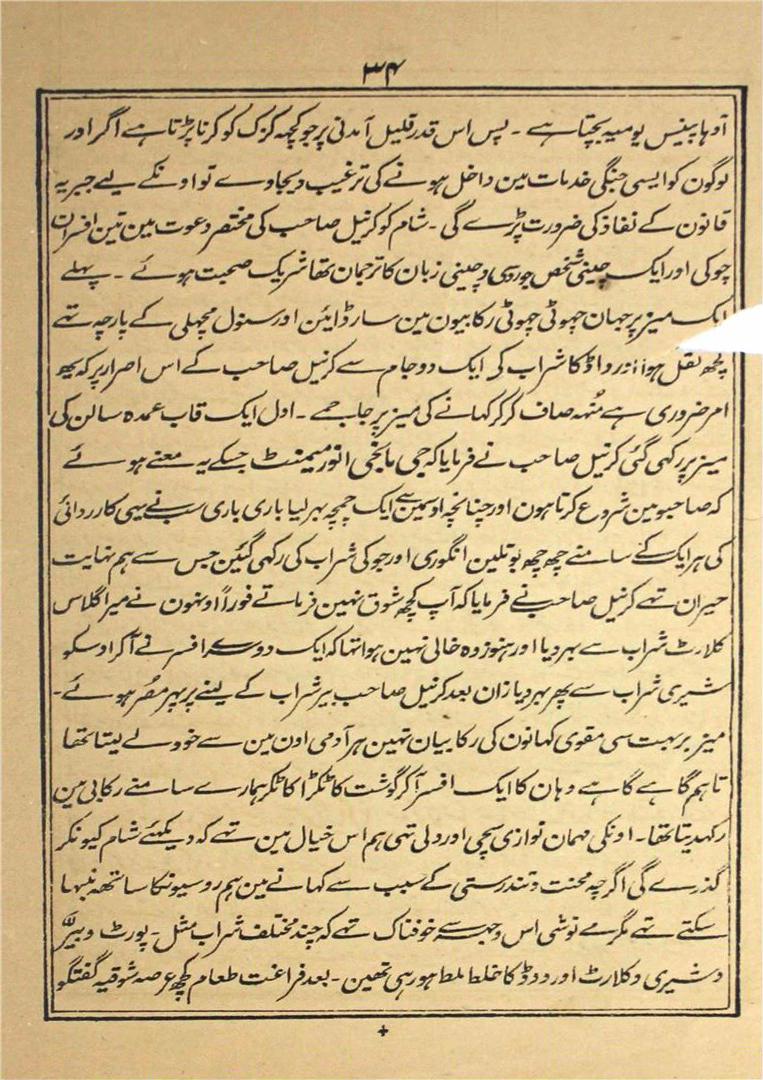 ۳۴
آدہا پینس یومیہ بچتا ہے ۔ پس اس قدر قلیل آمدنی پر جو کچھ کزک کو کرنا پڑتا ہے اگر اور
لوگون کو ایسی جنگی خدمات مین داخل ہونے کی ترغیب دیجاوے تو اونکے لیے جبریہ
قانون کے نفاذ کی ضرورت پڑے گی ۔ شام کو کرنیل صاحب کی مختصر دعوت مین تین افسران
چوکی اور ایک چینی شخص جو روسی و چینی زبان کا ترجمان تھا شریک صحبت ہوئے ۔ پہلے
ایک میز پر جہان چھوٹی چھوٹی رکابیون مین سارڈائن اور سنول مچھلی کے پارچہ تھے
کچھ نقل ہوا اور واڈکا شراب کی ایک دو جام سے کرنیل صاحب کے اس اصرار پر کہ یہ
امر ضروری ہے منُہہ صاف کر کر کہانے کی میز پر جا جمے ۔ اول ایک قاب عمدہ سالن کی
میز پر رکھی گئی کرنیل صاحب نے فرمایا کہ جی مانجی انور میمنٹ جسکے یہ معنے ہوئے
کہ صاحبو مین شروع کرتا ہون اور چنانچہ اوسمین سے ایک چمچہ بھر لیا باری باری سب نے یہی کارروائی
کی ہر ایک کے سامنے چھ چھ بوتلین انگوری اور جو کی شراب کی رکھی گئین جس سے ہم نہایت
حیران تھے کرنیل صاحب نے فرمایا کہ آپ کچھ شوق نہین فرماتے فوراً اونہون نے میرا گلاس
کلارٹ شراب سے بھر دیا اور ہنوز وہ خالی نہین ہوا تھا کہ ایک دوسرے افسر نے آکر اوسکو
شیری شراب سے پھر بھر دیا زان بعد کرنیل صاحب بیر شراب کے لینے پر پھر مصُر ہوئے ۔
میز پر بہت سی مقوی کہانون کی رکابیان تہین ہر آدمی اون مین سے خود لے لیتا تھا
تاہم گاہے گاہے وہان کا ایک افسر آکر گوشت کا ٹکڑا کاٹکر ہمارے سامنے رکابی مین
رکھدیتا تھا ۔ اونکی مہمان نوازی سچی اور دلی تہی ہم اس خیال مین تھے کہ دیکھئے شام کیونکر
گذرے گی اگرچہ محنت و تندرستی کے سبب سے کہانے مین ہم روسیونکا ساتھ نبہا
سکتے تھے مگر مے نوشی اس وجہہ سے خوفناک تھے کہ چند مختلف شراب مثل ۔ پورٹ و بیر
و شیری و کلارٹ اور ووڈکا خلط ملط ہو رہی تھین ۔ بعد فراغت طعام کچھ عرصہ شوقیہ گفتگو